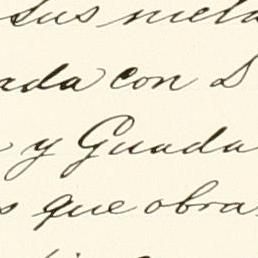 sus meta
ada con S
y Guada
s que obra